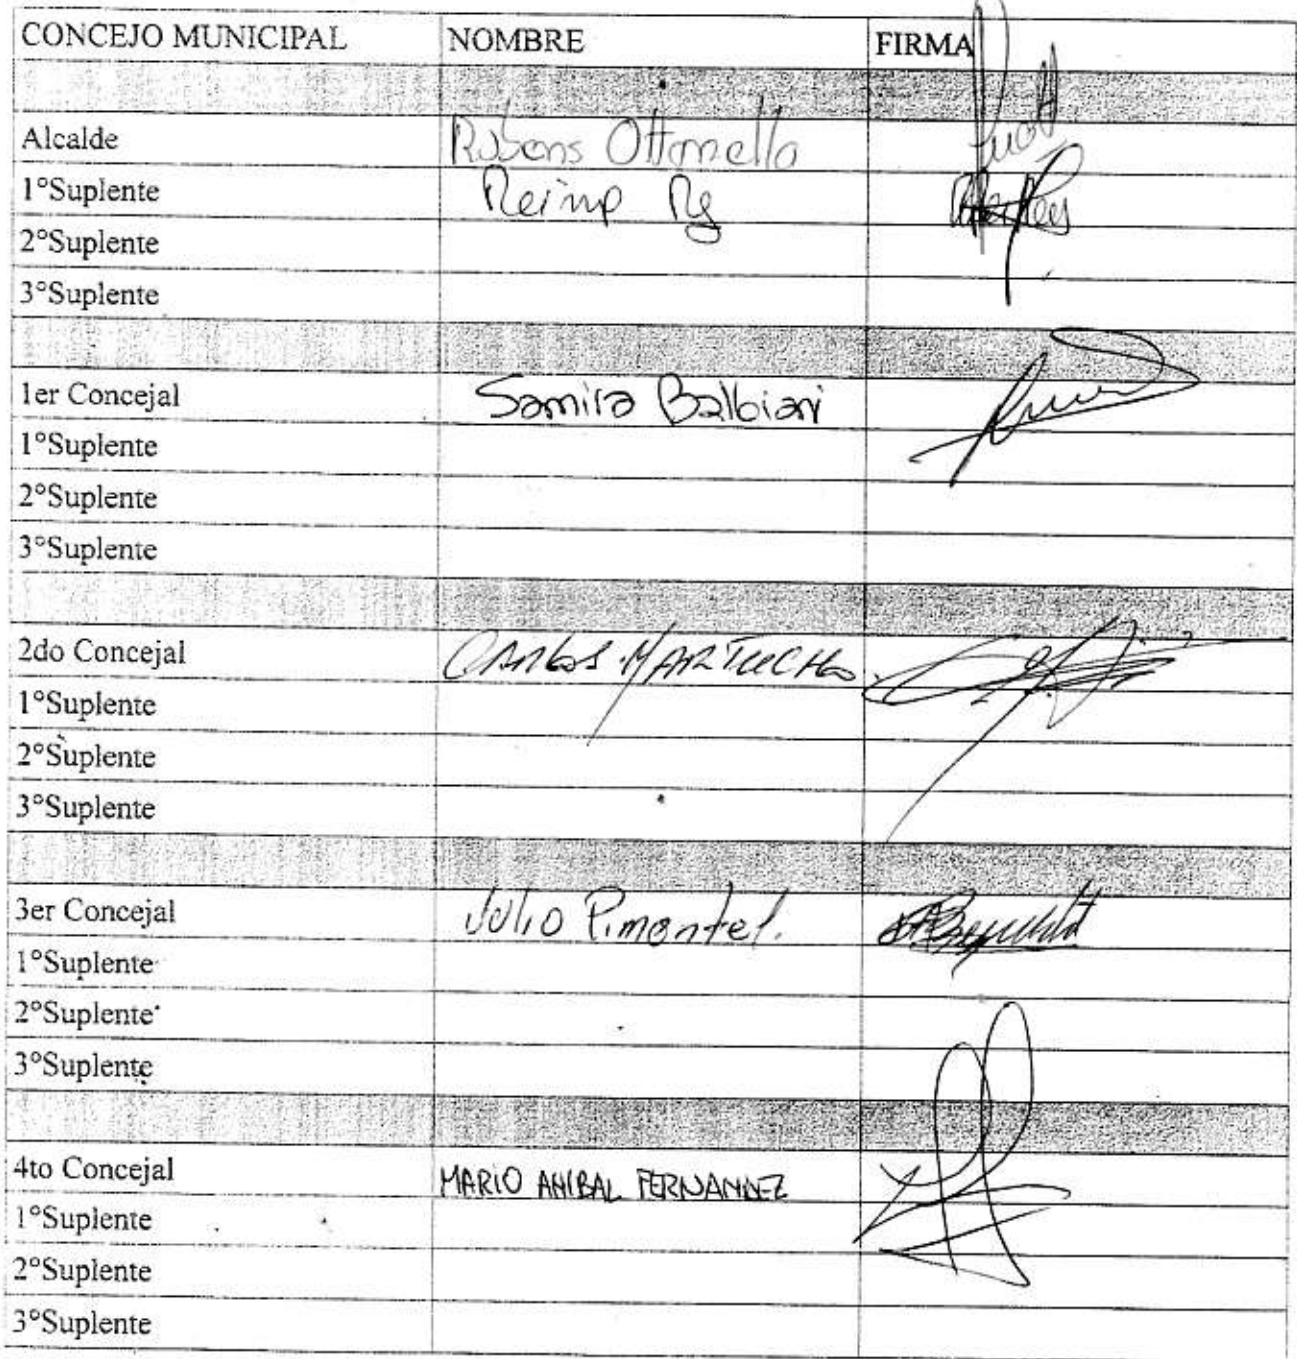 CONCEJO MUNICIPAL NOMBRE FIRMA
Alcalde Rubens Ottonello
1°Suplente
2°Suplente
3°Suplente
1er Concejal Samira Balbiani
1°Suplente
2°Suplente
3°Suplente
2do Concejal CARLOS MARTUCHO.
1°Suplente
2°Suplente
3°Suplente
3er Concejal Julio Pimentel.
1°Suplente
2°Suplente
3°Suplente
4to Concejal MARIO ANIBAL FERNANDEZ
1°Suplente
2°Suplente
3°Suplente